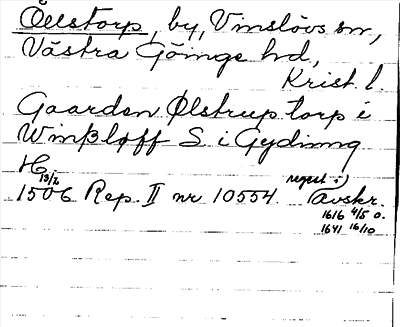 Ölstorp, by, Vinslövs sn,
Västra Göinge hd,
Krist. l.
Gaarden Ølstrup torp i
Winßløff S. i Gydinng
H
1506 13/2 Rep. II nr 10554. regest :)
(avskr.
1616 4/5 o.
1641 16/10